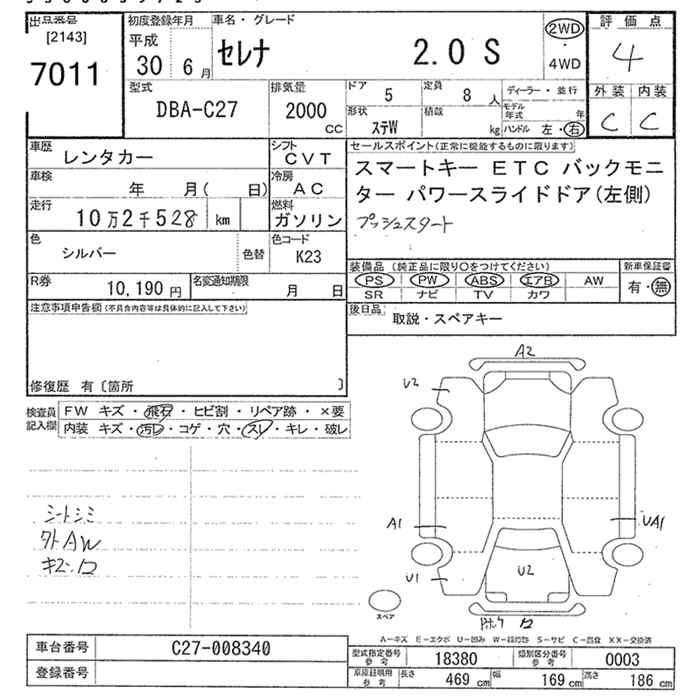 出品番号
[2143]
7011
初度登録年月
平成
30 6月
車名・グレード
セレナ 2.0 S
2WD
・
4WD
評価点
4
外装 内装
C C
型式
DBA-C27
排気量
2000
CC
ドア 5
定員 8 人
形状
ステW
積載
kg
ディーラー・並行
モデル年式 年
ハンドル 左・右
車歴 レンタカー
シフト
CVT
車検 年 月( 日)
冷房
AC
走行 10万2千528 km
燃料
ガソリン
色 シルバー 色替
色コード
K23
R券 10,190 円
名変通知期限
月 日
セールスポイント(正常に機能するものに限ります)
スマートキー ETC バックモニ
ター パワースライドドア(左側)
プッシュスタート
装備品 (純正品に限り○をつけてください)
PS PW ABS エアB AW
SR ナビ TV カワ
新車保証書
有・無
後日品
取説・スペアキー
注意事項申告欄(不具合内容等は具体的に記入して下さい)
修復歴 有〔箇所 〕
検査員記入欄
FW キズ・飛石・ヒビ割・リペア跡・×要
内装 キズ・汚レ・コゲ・穴・スレ・キレ・破レ
シートシミ
外AW
キズ・ワ
A2
U2
A1
UA1
U1
U2
スペア
A-キズ E-エクボ U-凹み W-補修跡 S-サビ C-腐食 XX-交換済
車台番号 C27-008340
登録番号
型式指定番号
参考
18380
類別区分番号
参考
0003
車庫証明用
参考
長さ 469 cm
幅 169 cm
高さ 186 cm